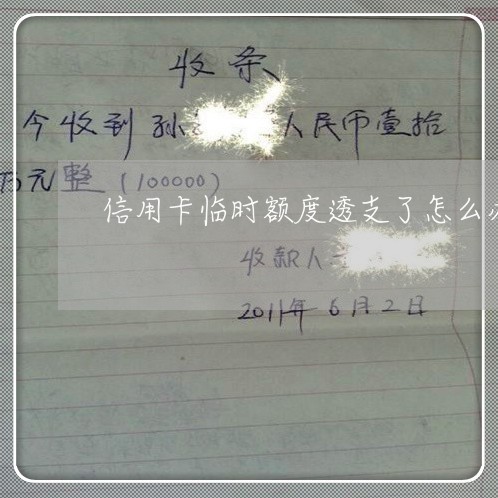 收条
今收到孙 人民币壹拾
万元整(100000)
信用卡临时额度透支了怎么
收款人
2011年6月2日